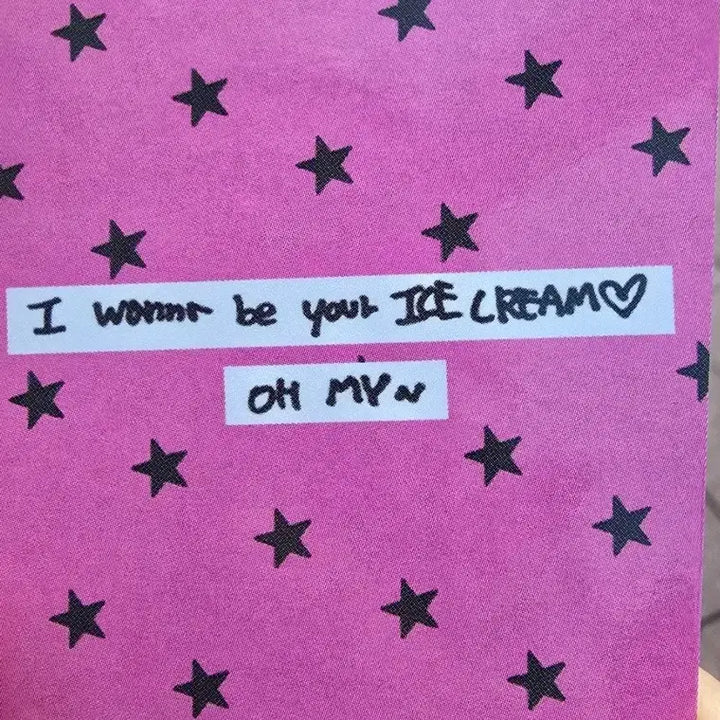 I wanna be your ICE CREAM♡
OH MY~